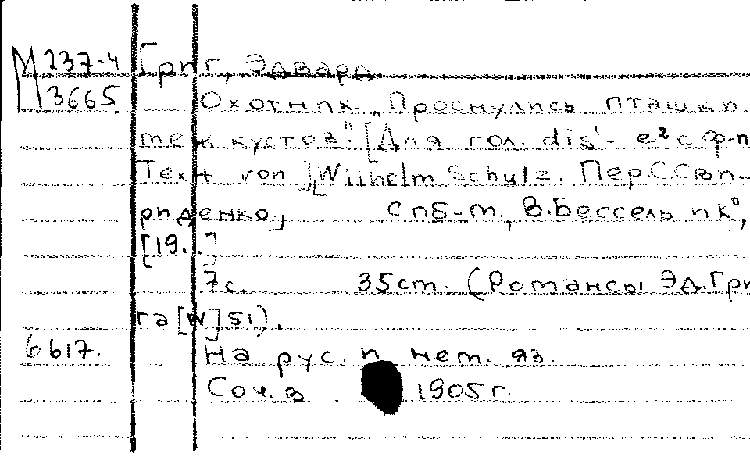 М 237-4 Григ, Эдвард
3665 Охотник „Проснулись пташки
тем кустов". [Для гол. dis'- e² с ф-п
Текст von] Wilhelm Schulz. Пер. С. Сви-
риденко, Спб-м, В. Бессель и К°,
[19...]
7с. 35см. (Романсы Эд. Гри
га [№] 51).
6617. На рус. и нем. яз.
Соч. в 1905 г.